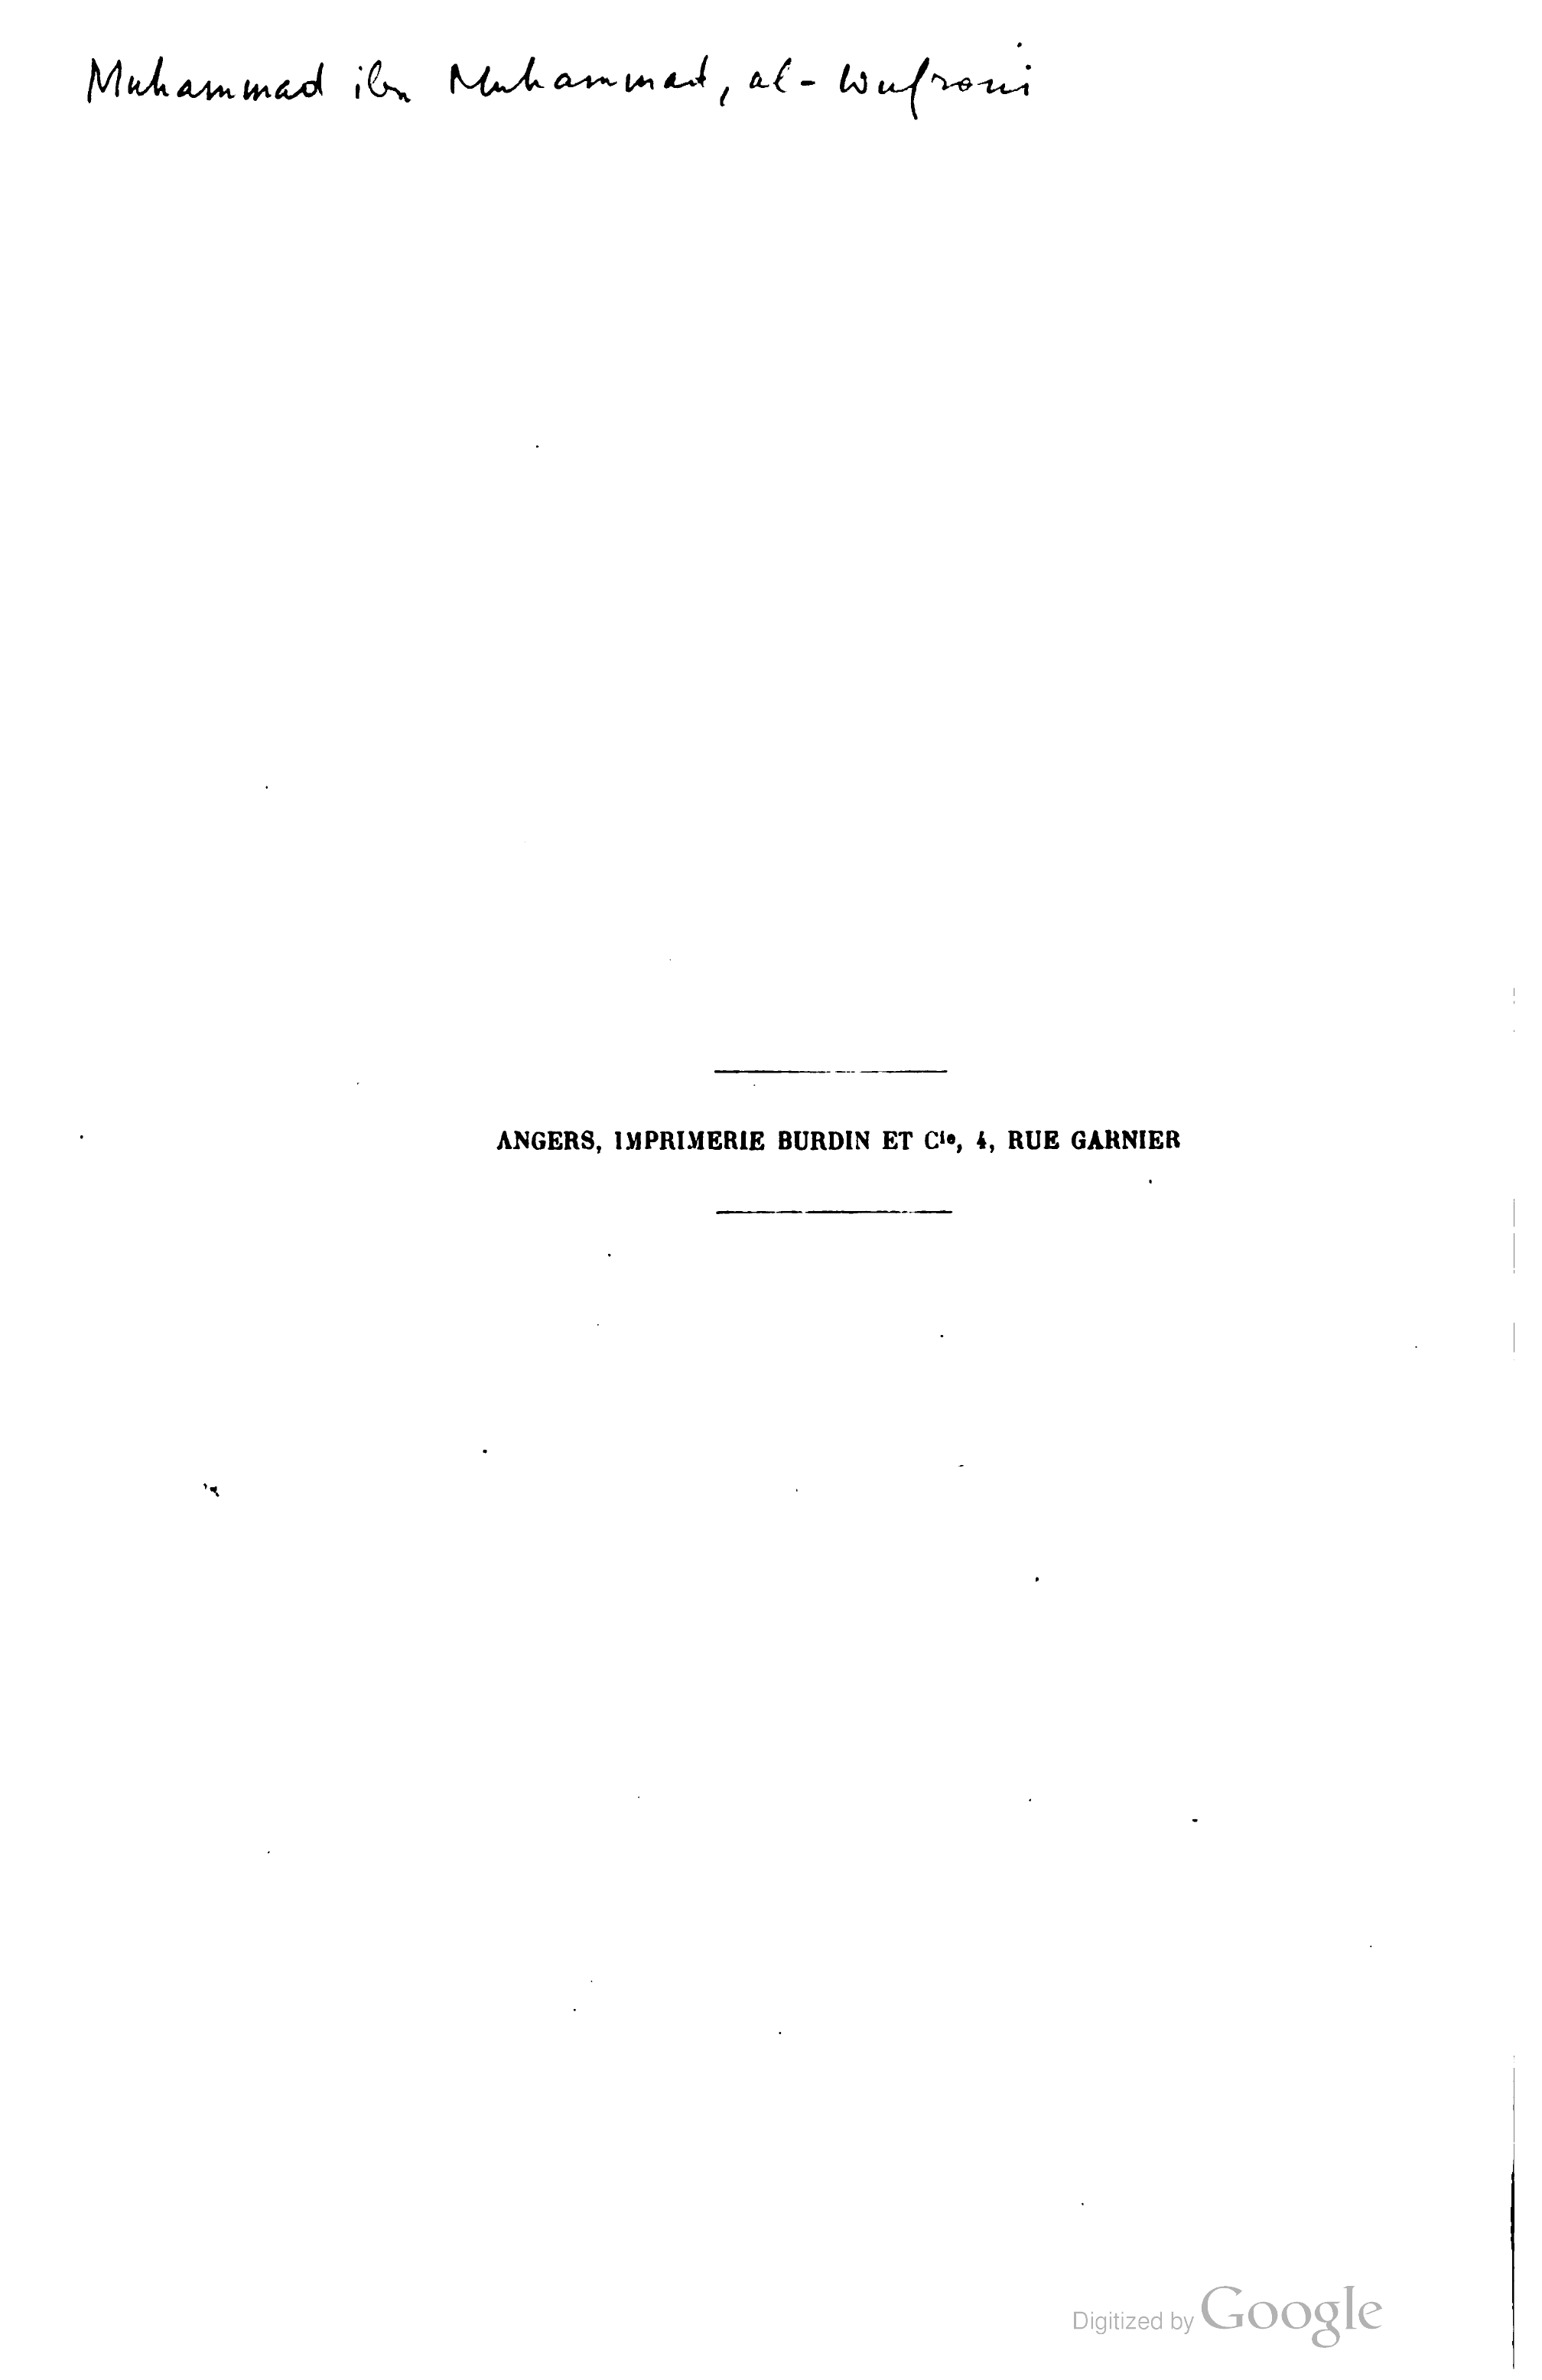 Muhammad ibn Muhammad, al-Wufroni
ANGERS, IMPRIMERIE BURDIN ET Cie, 4, RUE GARNIER
Digitized by Google